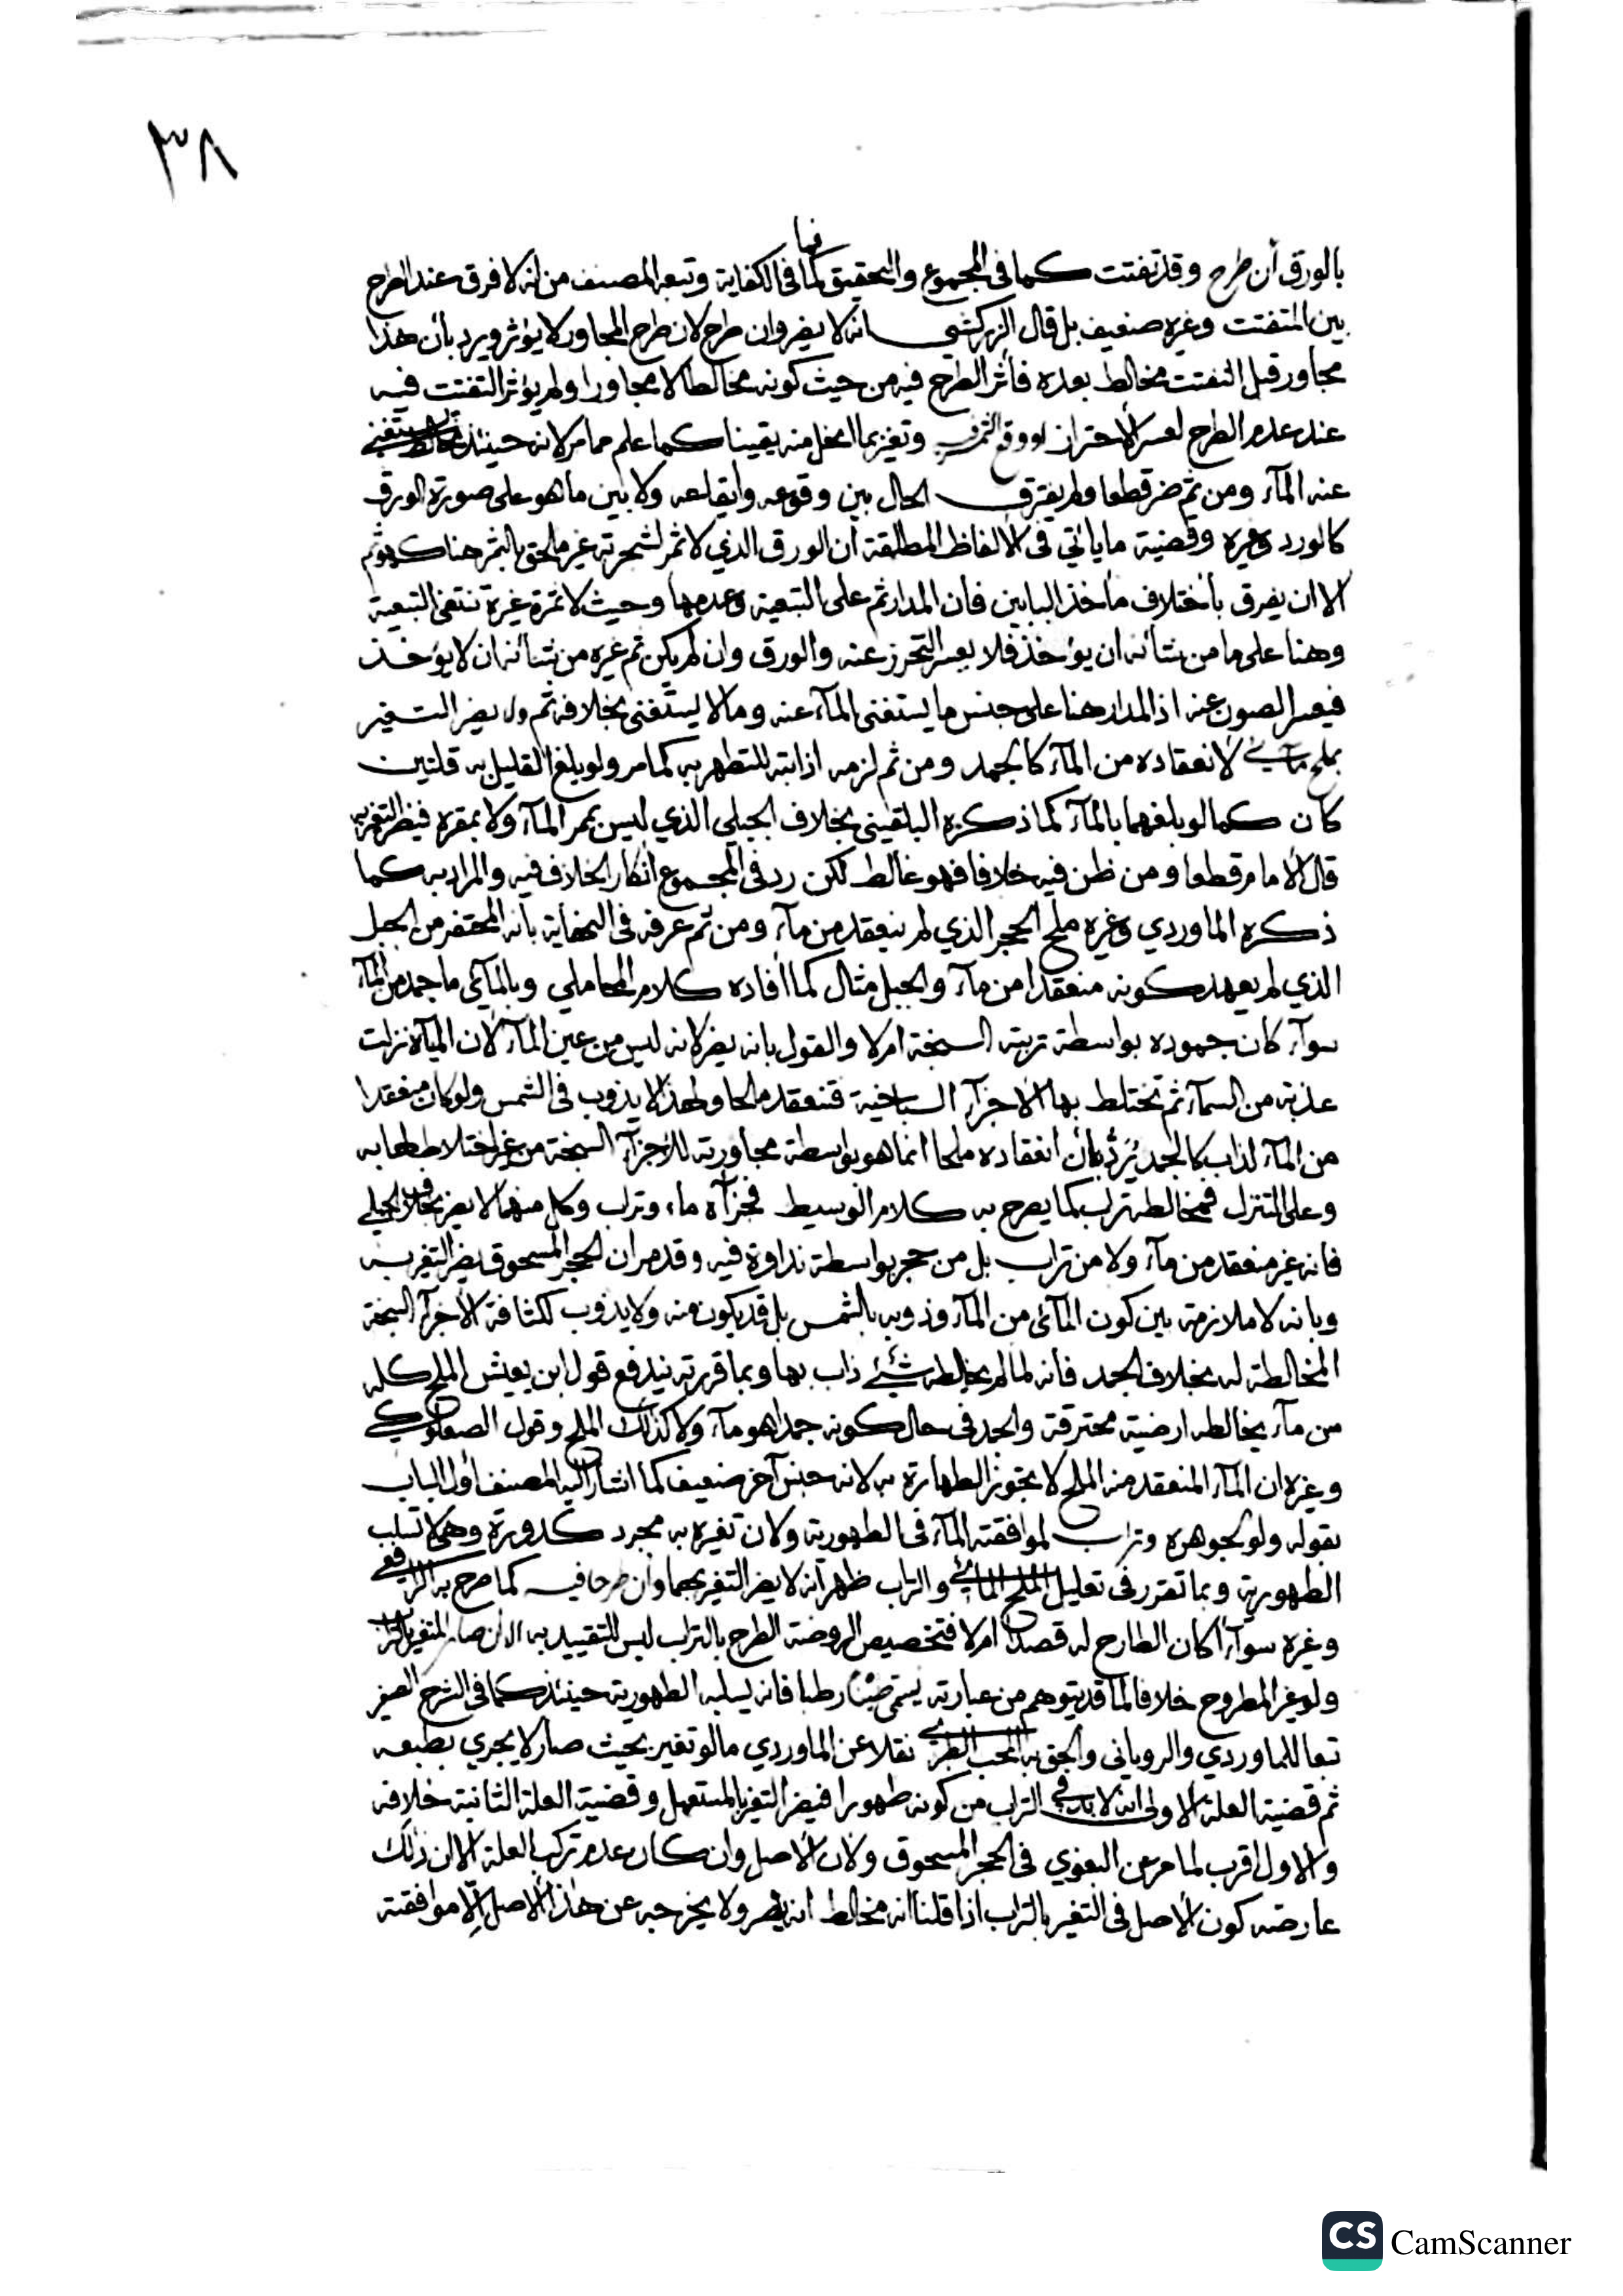 ٣٨
فما
بالورق أن طرح وقد تفتت كما في المجموع والتحقيق كما في الكفاية وتبعه المصنف من انه لا فرق عند الطرح
بين المتفتت وغيره ضعيف بل قال الزركشي انه لا يضر وان طرح لان طرح المجاور لا يؤثر ويرد بأن هذا
مجاور قبل التفتت مخالط بعده فأثر الطرح فيه من حيث كونه مخالطا لا مجاورا ولم يؤثر التفتت فيه
عند عدم الطرح لعسر الاحتراز لو وقع الثمر وتغير بما انحل منه يقينا كما علم مما مر لانه حينئذ مخالط يستغني
عنه المآء ومن ثم ضر قطعا ولم يفترق الحال بين وقوعه وايقاعه ولا بين ما هو على صورة الورق
كالورد وغيره وقضية ما يأتي في الالفاظ المطلقة أن الورق الذي لا ثمر لشجرته غير ملحق بالثمر هنا كهو ثم
الا ان يفرق بأختلاف مأخذ البابين فان المدار ثم على التبعية وعدمها وحيث لا ثمرة غيره تنتفي التبعية
وهنا على ما من شأنه ان يؤخذ فلا يعسر التحرز عنه والورق وان لم يكن ثم غيره من شأنه ان لا يؤخذ
فيعسر الصون عنه اذ المدار هنا على جنس ما يستغنى المآء عنه وما لا يستغنى بخلافه ثم ولا يضر التغير
بملح مآئي لانعقاده من المآء كالجمد ومن ثم لزمه اذابته للتطهر به كما مر ولو بلغ القليل به قلتين
كان كما لو بلغهما بالمآء كما ذكره البلقيني بخلاف الجبلي الذي ليس بممر المآء ولا بمقره فيضر التغير به
قال الامام قطعا ومن ظن فيه خلافا فهو غالط لكن رد في المجموع انكار الخلاف فيه والمراد به كما
ذكره الماوردي وغيره ملح الحجر الذي لم ينعقد من مآء ومن ثم عرفه في النهاية بأنه المحتفر من الجبل
الذي لم يعهد كونه منعقدا من مآء والجبل مثال كما أفاده كلام المحاملي وبالمآئي ما جمد من المآء
سوآء كان جموده بواسطة تربته السبخة ام لا والقول بانه يضر لانه ليس من عين المآء لان المياه نزلت
عذبة من السمآء ثم تختلط بها الاجزآء السباخية فتنعقد ملحا ولهذا لا يذوب في الشمس ولو كان منعقدا
من المآء لذاب كالجمد يُردُّ بأن انعقاده ملحا انما هو بواسطة مجاورته للاجزآء السبخة من غير اختلاطها به
وعلى التنزل فمخالطه تراب كما يصرح به كلام الوسيط فجزآه ماء وتراب وكل منهما لا يضر بخلاف الجبلي
فانه غير منعقد من مآء ولا من تراب بل من حجر بواسطة نداوة فيه وقد مر ان الحجر المسحوق يضر التغير به
وبانه لا ملازمة بين كون المآئي من المآء وذوبه بالشمس بل قد يكون منه ولا يذوب لكثافة الاجزآء السبخة
المخالطة له بخلاف الجمد فانه لما لم يخالطه شئ ذاب بها وبما قررته يندفع قول ابن يعيش الملح كله
من مآء يخالطه ارضية محترقة والجمد في حال كونه جمدا هو مآء ولا كذلك الملح وقول الصعلوكي
وغيره ان المآء المنعقد منه الملح لا يجوز الطهارة به لانه جنس آخر ضعيف كما اشار اليه المصنف أول الباب
بقوله ولو لجوهره وتراب لموافقته المآء في الطهورية ولان تغيره به مجرد كدورة وهي لا تسلب
الطهورية وبما تقرر في تعليل الملح المائي والتراب ظهر أنه لا يضر التغير بهما وأن طرحا فيه كما صرح به الرافعي
وغيره سوآءا كان الطارح له قصدا ام لا فتخصيص الروضة الطرح بالتراب ليس للتقييد به الا ان صار المتغير بالتراب
ولو غير المطروح خلافا لما قد يتوهم من عبارته يسمى طينا رطبا فانه يسلبه الطهورية حينئذ كما في الشرح الصغير
تبعا للماوردي والروياني والحق به المحب الطبري نقلا عن الماوردي ما لو تغير بحيث صار لا يجري بطبعه
ثم قضية العلة الاولى انه لا بد في التراب من كونه طهورا فيضر التغير بالمستعمل وقضية العلة الثانية خلافه
والاول اقرب لما مر عن البغوي في الحجر المسحوق ولان الاصل وان كان عدم تركب العلة الا ان ذلك
عارضه كون الاصل في التغير بالتراب اذا قلنا انه مخالط انه يضر ولا يخرجه عن هذا الاصل الا موافقته
CS CamScanner